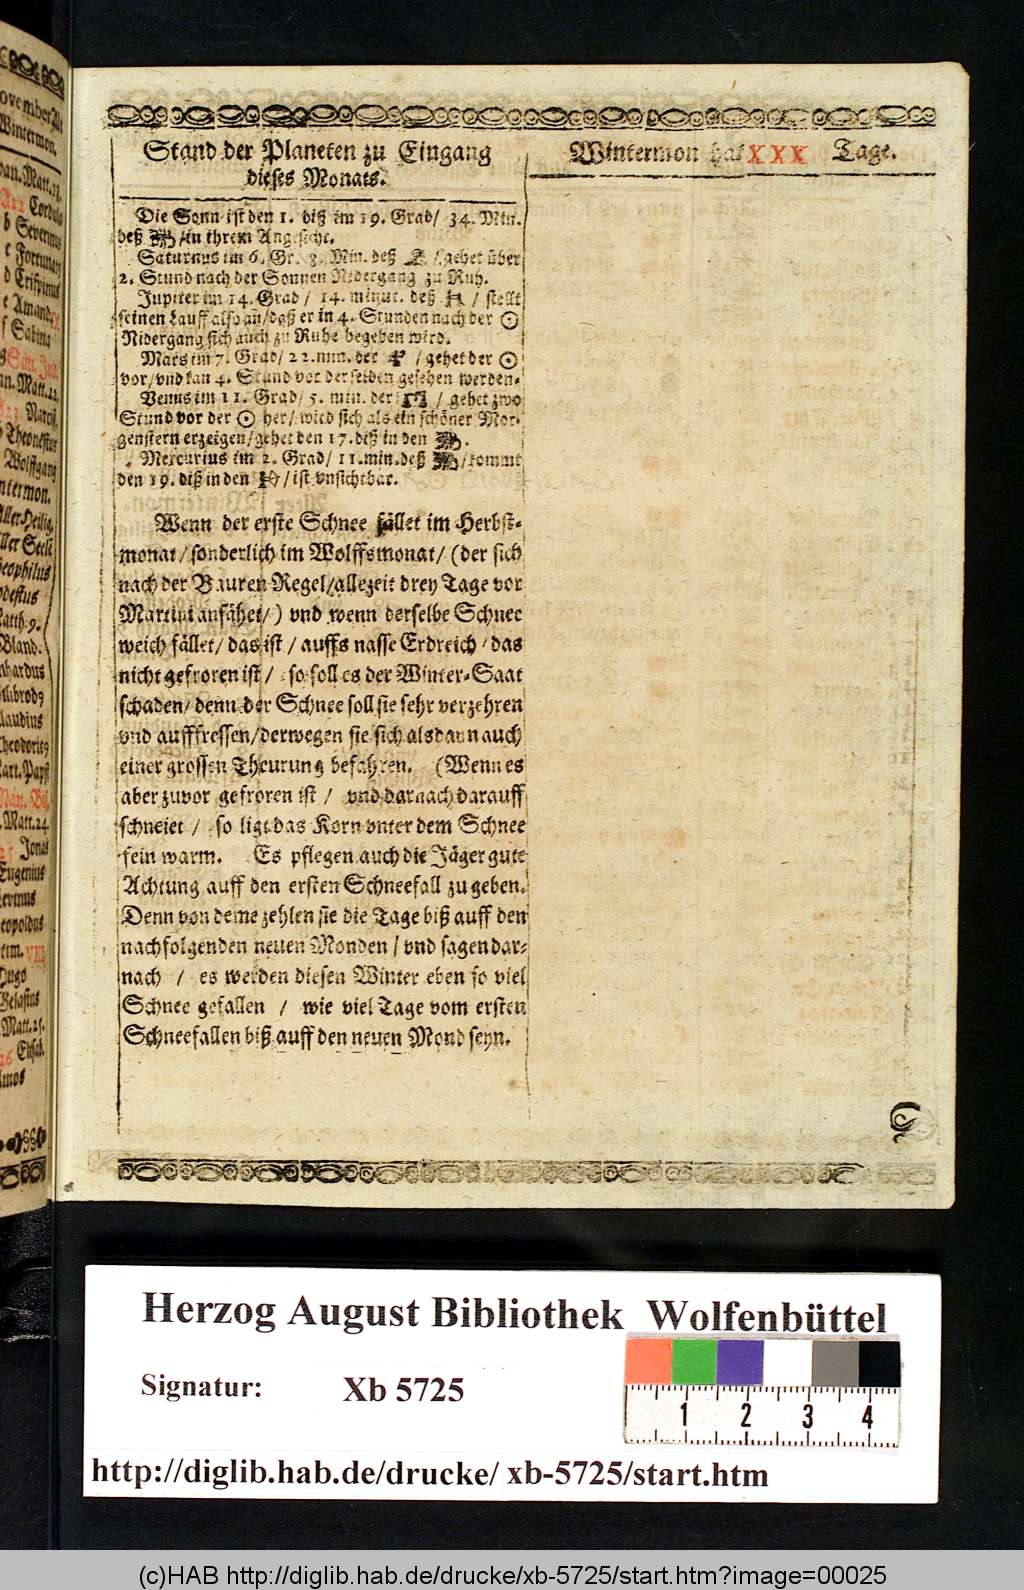 ovember
Wintermon.
an. Matt.
Cordula
b Severinus
c Fortunat
d Crispinus
e Amand
f Sabina
g Sim. Jud.
an. Matt. 22.
Narciss.
Theonestus
Wolffgang
ntermon.
ller Heilig.
ller Seele
eophilus
odestus
atth. 9.
Bland.
nhardus
illibrod9
laudius
heodorus
art. Papst
Mar. Bis.
Matt. 24.
Jonas
Eugenius
evinus
eopoldus
VII.
Hugo
Gelasius
Matt. 25.
26 Elisab.
Amos
Stand der Planeten zu Eingang
dieses Monats.
Die Sonn ist den 1. diß im 19. Grad/ 34. Min.
deß ♏/in ihrem Angesicht.
Saturnus im 6. Gr. 3. Min. deß ♎/gehet über
2. Stund nach der Sonnen Nidergang zu Ruh.
Jupiter im 14. Grad / 14. minut. deß / stellt
seinen Lauff also an/daß er in 4. Stunden nach der ☉
Nidergang sich auch zu Ruhe begeben wird.
Mars im 7. Grad/ 22. min. der / gehet der ☉
vor/vnd kan 4. Stund vor derselben gesehen werden.
Venus im 11. Grad/ 5. min. der / gehet zwo
Stund vor der ☉ her/ wird sich als ein schöner Mor-
genstern erzeigen/gehet den 17. diß in den ♏.
Mercurius im 2. Grad/ 11.min.deß ♏/kommt
den 19. diß in den / ist vnsichtbar.
Wenn der erste Schnee fället im Herbst-
monat/sonderlich im Wolffsmonat/ (der sich
nach der Bauren Regel/allezeit drey Tage vor
Martini anfähet/) vnd wenn derselbe Schnee
weich fället/ das ist / auffs nasse Erdreich / das
nicht gefroren ist / so soll es der Winter-Saat
schaden/ denn der Schnee soll sie sehr verzehren
vnd aufffressen/derwegen sie sich alsdann auch
einer grossen Theurung befahren. (Wenn es
aber zuvor gefroren ist / vnd darnach darauff
schneiet / so ligt das Korn vnter dem Schnee
fein warm. Es pflegen auch die Jäger gute
Achtung auff den ersten Schneefall zu geben.
Denn von deme zehlen sie die Tage biß auff den
nachfolgenden neuen Monden / vnd sagen dar-
nach / es werden diesen Winter eben so viel
Schnee gefallen / wie viel Tage vom ersten
Schneefallen biß auff den neuen Mond seyn.
Wintermon hat XXX Tage.
Herzog August Bibliothek Wolfenbüttel
Signatur: Xb 5725
1 2 3 4
http://diglib.hab.de/drucke/ xb-5725/start.htm
(c)HAB http://diglib.hab.de/drucke/xb-5725/start.htm?image=00025